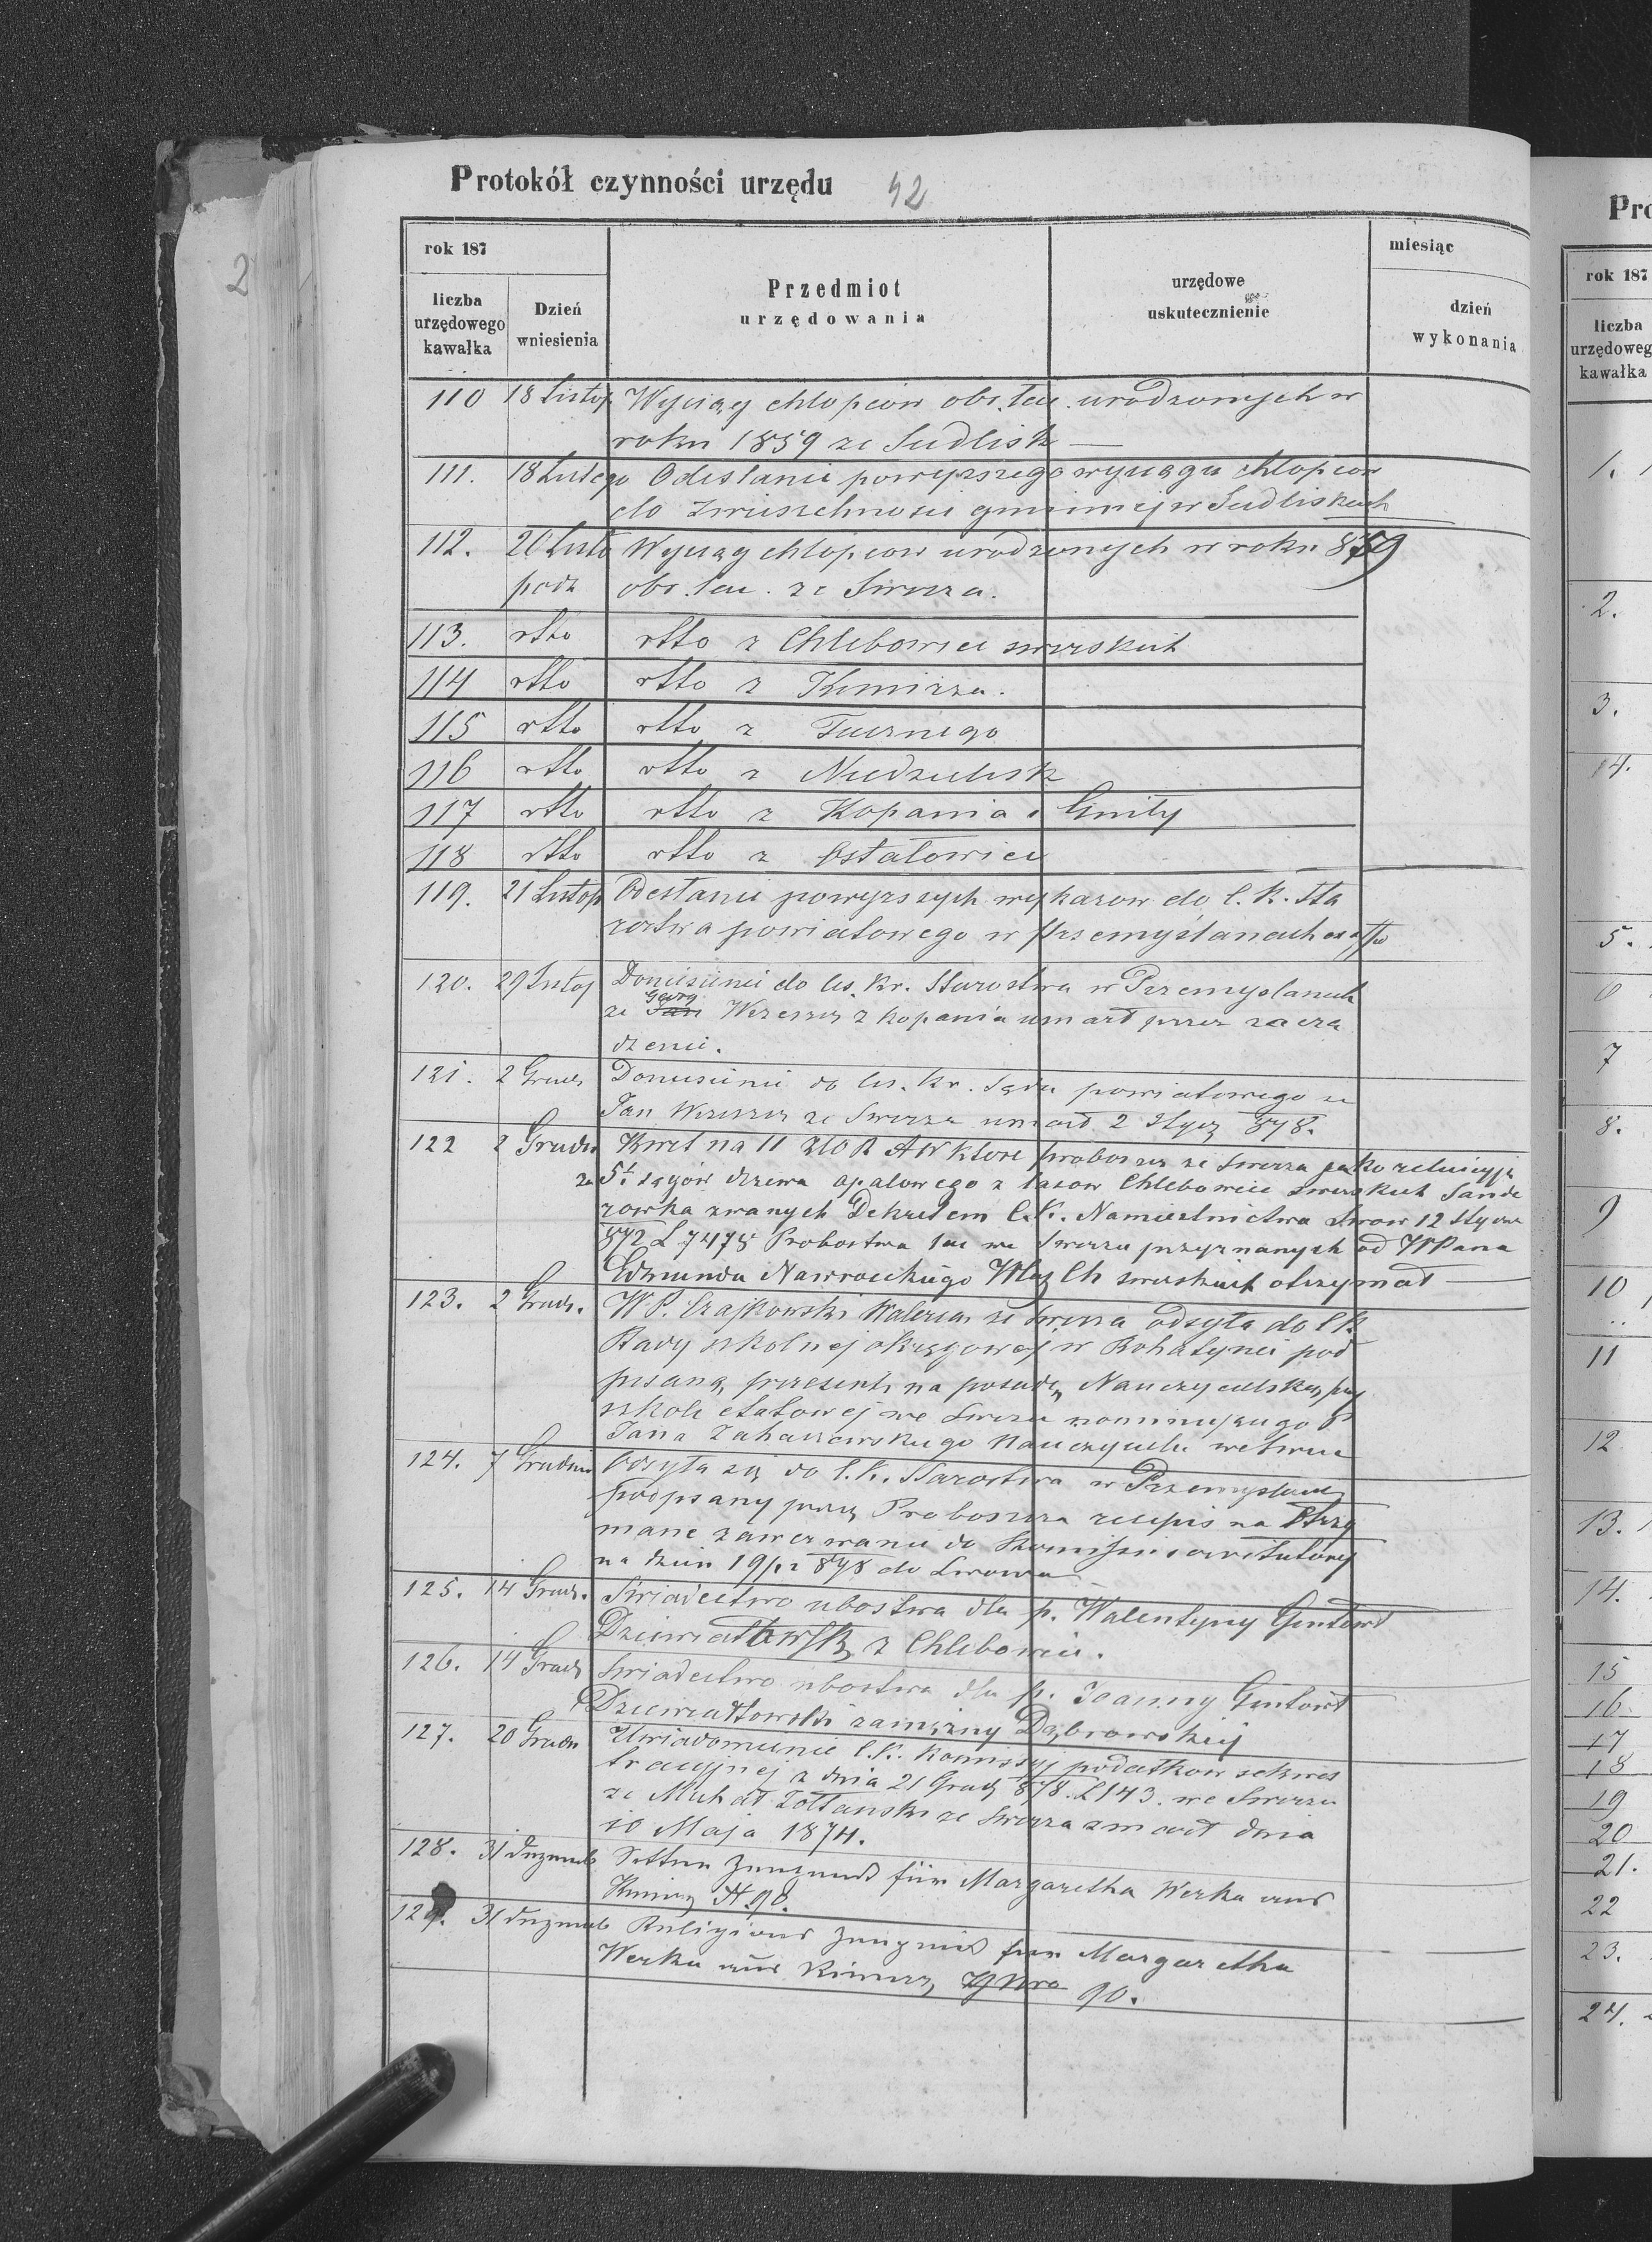 Protokół czynności urzędu 42
rok 187
miesiąc
liczba urzędowego kawałka
Dzień wniesienia
Przedmiot urzędowania
urzędowe uskutecznienie
dzień wykonania
110 18 Listop Wyciąg chłopców obr. łac. urodzonych w
roku 1859 ze Siedlisk
111. 18 Listop Odesłanie powyższego wyciągu chłopców
do Zwierzchności gminnej w Siedliskach
112. 20 Listo Wyciąg chłopców urodzonych w roku 859
pada obr. łac. ze Swirza.
113. dtto dtto z Chlebowic swirskich
114 dtto dtto z Kimirza.
115 dtto dtto z Tucznego
116 dtto dtto z Niedzielisk
117 dtto dtto z Kopania i Gnity
118 dtto dtto z Ostałowic
119. 21 Listop Odesłanie powyższych wykazów do C. K. Sta
rostwa powiatowego w Przemyślanach
120. 29 Listop Doniesienie do Ces. Kr. Starostwa w Przemyslanach
ze Jan Wrzeszcz z Kopania umarł przez zacza
dzenie.
121. 2 Grud Doniesienie do Ces. Kr. Sądu powiatowego ze
Jan Wrzeszcz ze Swirza umarł 2 Stycz 878.
122 2 Grudn Kwit na 11 zł AW które proboszcz ze Swirza jako relucyją
za 5 sągów drzewa opałowego z lasow Chlebowice swirskich
zwanych Dekretem C. K. Namiestnictwa Lwow 12 Stycz
872 L 7475 Probostwa łac we Swirzu przyznanych od WPana
Edmunda Nawrockiego Właś Ch swirskich otrzymał
123. 2 Grud. W P. Czajkowski Waleria ze Swirza odsyła do C K
Rady szkolnej okręgowej w Rohatynie pod
pisaną prezente na posadę Nauczycielską przy
szkole etatowej we Swirzu nominującego P
Jana Nauczyciela we Swirzu
124. 7 Grudnia Odsyła się do C. K. Starostwa w Przemyslanach
podpisany przez Proboszcza recepis na Otrzy
mane zawezwanie do
na dzien 19/12 878 do Lwowa
125. 14 Grud. Świadectwo ubostwa dla p. Walentyny Gintowt
Dziewiałtowską z Chlebowic.
126. 14 Grud Swiadectwo ubostwa dla p. Joanny Gintowt
Dziewiałtowski zamężny Dąbrowskiej
127. 20 Grudn Uwiadomienie C. K. Komissyj podatkow sekwes
tracyjnej z dnia 21 Grud 878. L 143. we Swirzu
ze Michał Żołtanski ze Swirza zmarł dnia
10 Maja 1874.
128. 31 Dezemb Sitten Zeugniß für Margaretha Werka aus
Kimirz N. 90.
129. 31 Dezemb Religions Zeugniß für Margaretha
Werka aus Kimirz Nro 90.
Pro
rok 187
liczba
urzędoweg
kawałka
1.
2.
3.
4.
5.
6
7
8.
9
10
11
12
13.
14.
15
16
17
18
19
20
21.
22
23.
24.
2